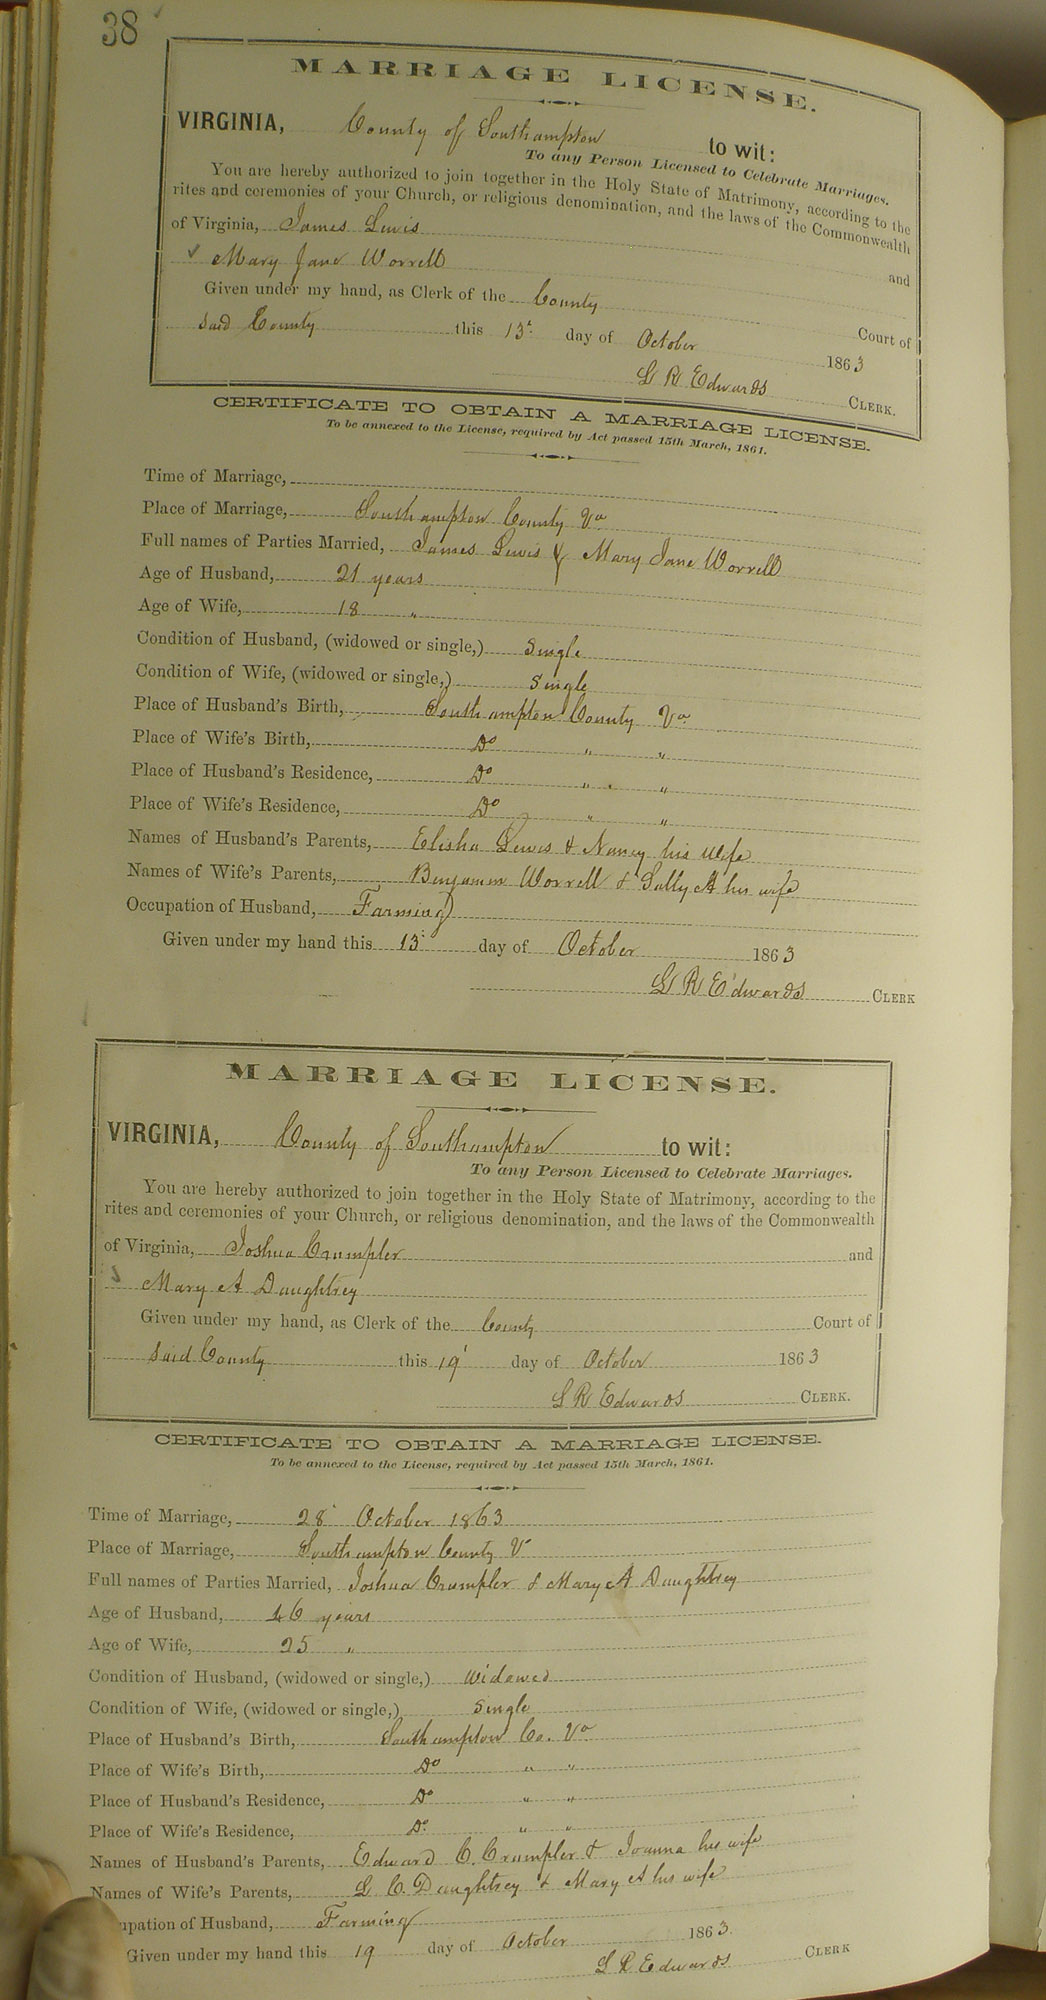 38
MARRIAGE LICENSE.
VIRGINIA, County of Southampton to wit:
To any Person Licensed to Celebrate Marriages.
You are hereby authorized to join together in the Holy State of Matrimony, according to the
rites and ceremonies of your Church, or religious denomination, and the laws of the Commonwealth
of Virginia, James Lewis and
Mary Jane Worrell
Given under my hand, as Clerk of the County Court of
said County this 13 day of October 1863
L R Edwards CLERK.
CERTIFICATE TO OBTAIN A MARRIAGE LICENSE.
To be annexed to the License, required by Act passed 15th March, 1861.
Time of Marriage,
Place of Marriage, Southampton County Va
Full names of Parties Married, James Lewis & Mary Jane Worrell
Age of Husband, 21 years
Age of Wife, 18 "
Condition of Husband, (widowed or single,) Single
Condition of Wife, (widowed or single,) Single
Place of Husband's Birth, Southampton County Va
Place of Wife's Birth, Do " "
Place of Husband's Residence, Do " "
Place of Wife's Residence, Do " "
Names of Husband's Parents, Elisha Lewis & Nancy his wife
Names of Wife's Parents, Benjamin Worrell & Sally A his wife
Occupation of Husband, Farming
Given under my hand this 13 day of October 1863
L R Edwards CLERK
MARRIAGE LICENSE.
VIRGINIA, County of Southampton to wit:
To any Person Licensed to Celebrate Marriages.
You are hereby authorized to join together in the Holy State of Matrimony, according to the
rites and ceremonies of your Church, or religious denomination, and the laws of the Commonwealth
of Virginia, Joshua Crumpler and
Mary A Daughtrey
Given under my hand, as Clerk of the County Court of
said County this 19 day of October 1863
L R Edwards CLERK.
CERTIFICATE TO OBTAIN A MARRIAGE LICENSE.
To be annexed to the License, required by Act passed 15th March, 1861.
Time of Marriage, 28 October 1863
Place of Marriage, Southampton County V
Full names of Parties Married, Joshua Crumpler & Mary A Daughtrey
Age of Husband, 46 years
Age of Wife, 25 "
Condition of Husband, (widowed or single,) Widowed
Condition of Wife, (widowed or single,) Single
Place of Husband's Birth, Southampton Co. Va
Place of Wife's Birth, Do " "
Place of Husband's Residence, Do " "
Place of Wife's Residence, Do " "
Names of Husband's Parents, Edward C. Crumpler & Joanna his wife
Names of Wife's Parents, L C. Daughtrey & Mary A his wife
upation of Husband, Farming
Given under my hand this 19 day of October 1863
L R Edwards CLERK